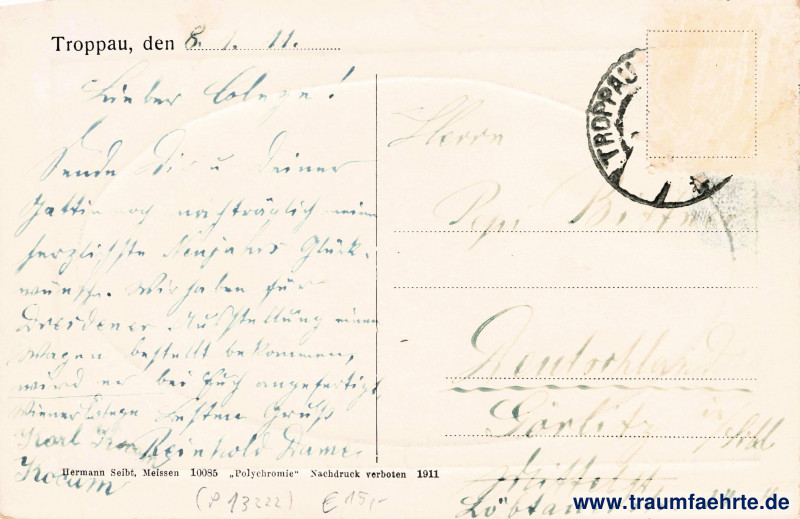 Troppau, den 8. 1. 11.
Lieber Colege!
Sende Dir u Deiner
Gattin noch nachträglich meine
herzlichste Neujahrs Glück-
wünsche. Wir haben für
Dresdener Ausstellung einen
Wagen bestellt bekommen,
wird er bei Euch angefertigt,
Wiener Colege Besten Gruß
Karl Reinhold
Hermann Seibt, Meissen 10085 „Polychromie" Nachdruck verboten 1911
(P 13222) € 15,-
TROPPAU
Herrn
Deutschland
Görlitz
Löbtau
www.traumfaehrte.de